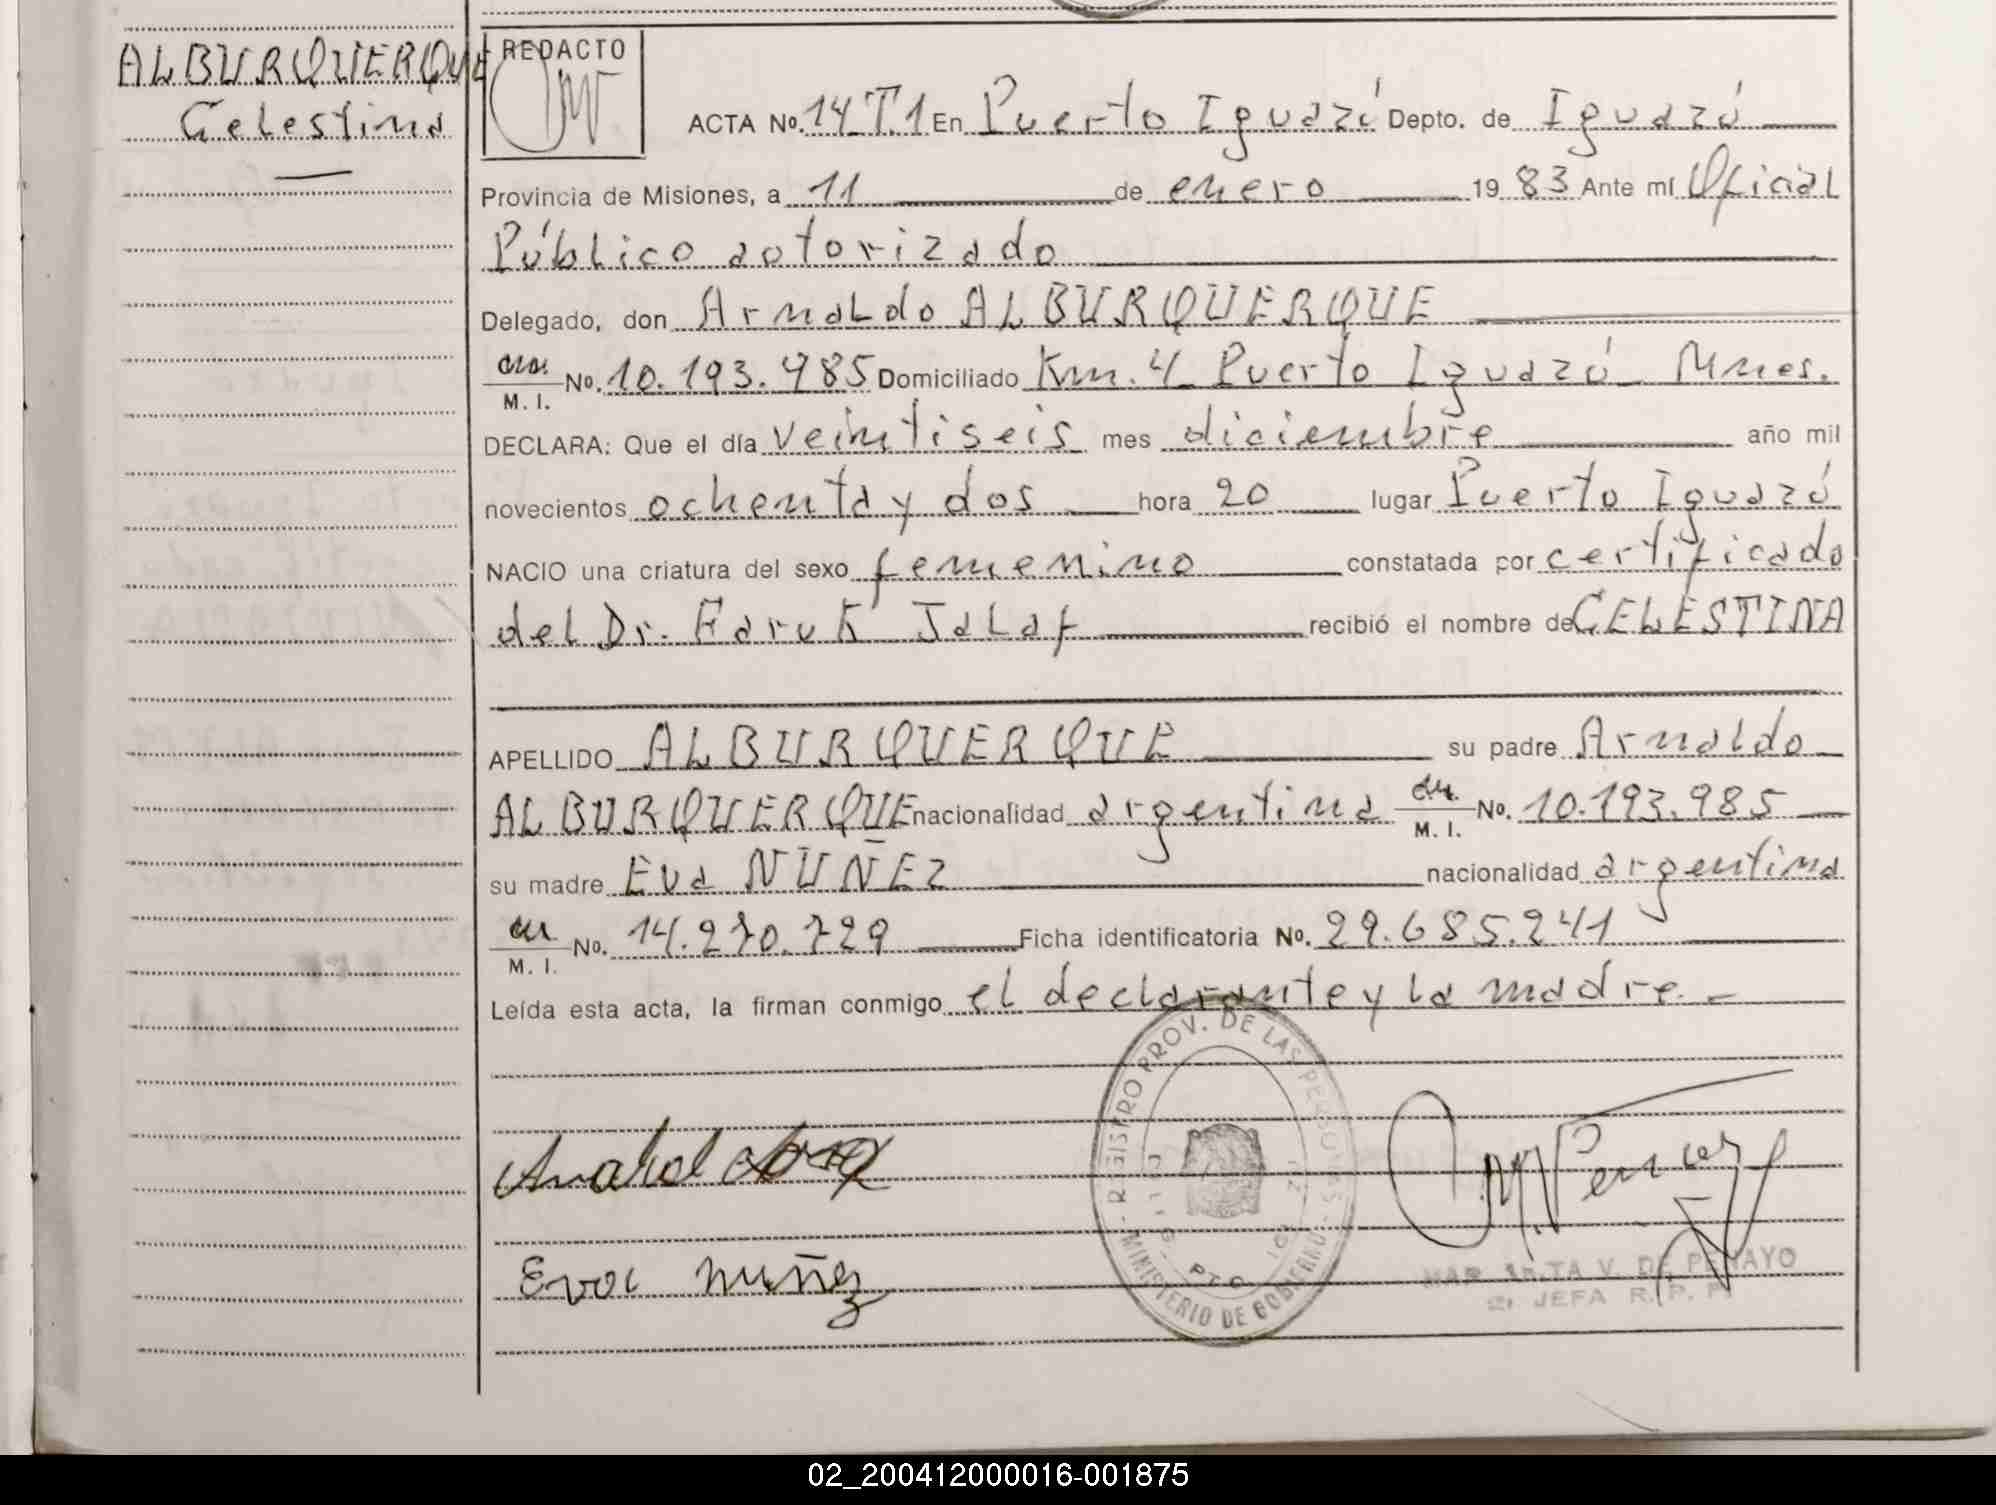 ALBURQUERQUE
Celestina
REDACTO
ACTA No. 14 T.1 En Puerto Iguazú Depto. de Iguazú
Provincia de Misiones, a 11 de enero 1983 Ante mí Oficial
Público autorizado
Delegado, don Arnaldo ALBURQUERQUE
M. I. No. 10.193.985 Domiciliado Km. 4 Puerto Iguazú Mnes.
DECLARA: Que el día veintiseis mes diciembre año mil
novecientos ochenta y dos hora 20 lugar Puerto Iguazú
NACIO una criatura del sexo femenino constatada por certificado
del Dr. Faruk Jalaf recibió el nombre de CELESTINA
APELLIDO ALBURQUERQUE su padre Arnaldo
ALBURQUERQUE nacionalidad argentina M. I. No. 10.193.985
su madre Eva NUÑEZ nacionalidad argentina
M. I. No. 14.270.729 Ficha identificatoria No. 29.685.241
Leída esta acta, la firman conmigo el declarante y la madre.-
REGISTRO PROV. DE LAS PERSONAS
MINISTERIO DE GOBIERNO
PTO.
Eva Nuñez
V. DE PENAYO
JEFA R. P. P.
02_200412000016-001875